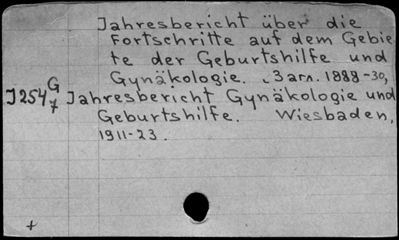 Jahresbericht über die
Fortschritte auf dem Gebie
te der Geburtshilfe und
Gynäkologie. 1888-30,
J254 G/7 Jahresbericht Gynäkologie und
Geburtshilfe. Wiesbaden,
1911-23.
+